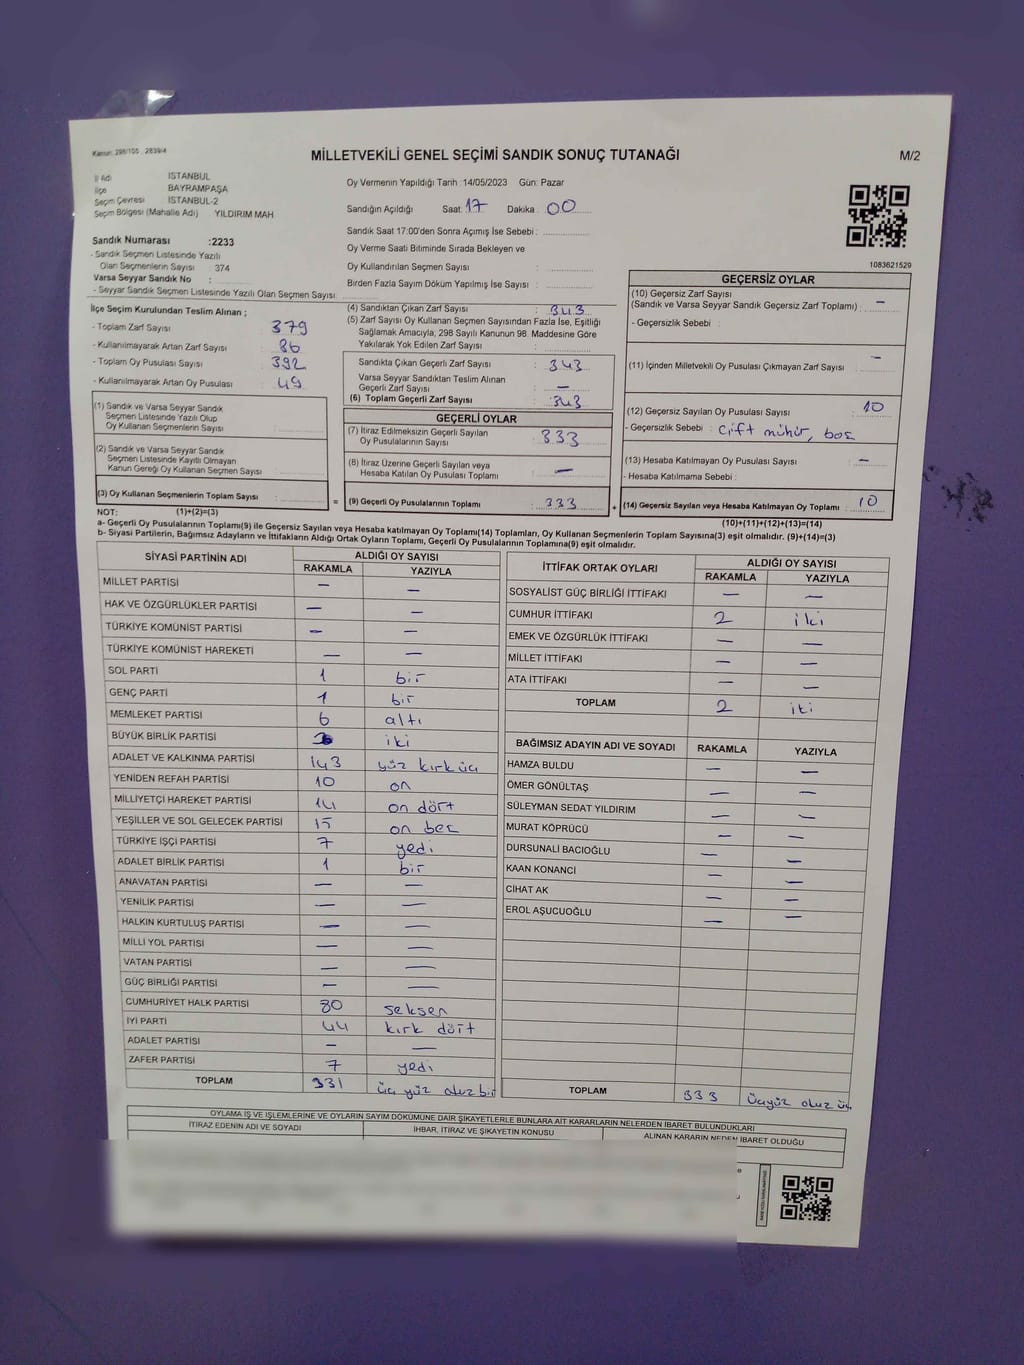 Kanun: 298/105 . 2839/4
MİLLETVEKİLİ GENEL SEÇİMİ SANDIK SONUÇ TUTANAĞI
M/2
İl Adı İSTANBUL
İlçe BAYRAMPAŞA
Seçim Çevresi İSTANBUL-2
Seçim Bölgesi (Mahalle Adı) YILDIRIM MAH
Sandık Numarası :2233
- Sandık Seçmen Listesinde Yazılı
Olan Seçmenlerin Sayısı : 374
Varsa Seyyar Sandık No :
- Seyyar Sandık Seçmen Listesinde Yazılı Olan Seçmen Sayısı:
Oy Vermenin Yapıldığı Tarih :14/05/2023 Gün: Pazar
Sandığın Açıldığı Saat: 17 Dakika : 00
Sandık Saat 17:00'den Sonra Açımış İse Sebebi :
Oy Verme Saati Bitiminde Sırada Bekleyen ve
Oy Kullandırılan Seçmen Sayısı :
Birden Fazla Sayım Döküm Yapılmış İse Sayısı :
1083621529
İlçe Seçim Kurulundan Teslim Alınan ;
- Toplam Zarf Sayısı : 379
- Kullanılmayarak Artan Zarf Sayısı : 86
- Toplam Oy Pusulası Sayısı : 392
- Kullanılmayarak Artan Oy Pusulası : 49
(1) Sandık ve Varsa Seyyar Sandık
Seçmen Listesinde Yazılı Olup
Oy Kullanan Seçmenlerin Sayısı :
(2) Sandık ve Varsa Seyyar Sandık
Seçmen Listesinde Kayıtlı Olmayan
Kanun Gereği Oy Kullanan Seçmen Sayısı :
(3) Oy Kullanan Seçmenlerin Toplam Sayısı :
(1)+(2)=(3)
(4) Sandıktan Çıkan Zarf Sayısı : 343
(5) Zarf Sayısı Oy Kullanan Seçmen Sayısından Fazla İse, Eşitliği
Sağlamak Amacıyla, 298 Sayılı Kanunun 98. Maddesine Göre
Yakılarak Yok Edilen Zarf Sayısı :
Sandıkta Çıkan Geçerli Zarf Sayısı : 343
Varsa Seyyar Sandıktan Teslim Alınan
Geçerli Zarf Sayısı : —
(6) Toplam Geçerli Zarf Sayısı : 343
GEÇERLİ OYLAR
(7) İtiraz Edilmeksizin Geçerli Sayılan
Oy Pusulalarının Sayısı : 333
(8) İtiraz Üzerine Geçerli Sayılan veya
Hesaba Katılan Oy Pusulası Toplamı : —
= (9) Geçerli Oy Pusulalarının Toplamı : 333
GEÇERSİZ OYLAR
(10) Geçersiz Zarf Sayısı
(Sandık ve Varsa Seyyar Sandık Geçersiz Zarf Toplamı) : —
- Geçersizlik Sebebi :
(11) İçinden Milletvekili Oy Pusulası Çıkmayan Zarf Sayısı : —
(12) Geçersiz Sayılan Oy Pusulası Sayısı : 10
- Geçersizlik Sebebi : Çift mühür, boş
(13) Hesaba Katılmayan Oy Pusulası Sayısı : —
- Hesaba Katılmama Sebebi :
+ (14) Geçersiz Sayılan veya Hesaba Katılmayan Oy Toplamı : 10
(10)+(11)+(12)+(13)=(14)
NOT:
a- Geçerli Oy Pusulalarının Toplamı(9) ile Geçersiz Sayılan veya Hesaba katılmayan Oy Toplamı(14) Toplamları, Oy Kullanan Seçmenlerin Toplam Sayısına(3) eşit olmalıdır. (9)+(14)=(3)
b- Siyasi Partilerin, Bağımsız Adayların ve İttifakların Aldığı Ortak Oyların Toplamı, Geçerli Oy Pusulalarının Toplamına(9) eşit olmalıdır.
SİYASİ PARTİNİN ADI ALDIĞI OY SAYISI
RAKAMLA YAZIYLA
MİLLET PARTİSİ — —
HAK VE ÖZGÜRLÜKLER PARTİSİ — —
TÜRKİYE KOMÜNİST PARTİSİ — —
TÜRKİYE KOMÜNİST HAREKETİ — —
SOL PARTİ 1 bir
GENÇ PARTİ 1 bir
MEMLEKET PARTİSİ 6 altı
BÜYÜK BİRLİK PARTİSİ iki
ADALET VE KALKINMA PARTİSİ 143 yüz kırk üç
YENİDEN REFAH PARTİSİ 10 on
MİLLİYETÇİ HAREKET PARTİSİ 14 on dört
YEŞİLLER VE SOL GELECEK PARTİSİ 15 on beş
TÜRKİYE İŞÇİ PARTİSİ 7 yedi
ADALET BİRLİK PARTİSİ 1 bir
ANAVATAN PARTİSİ — —
YENİLİK PARTİSİ — —
HALKIN KURTULUŞ PARTİSİ — —
MİLLİ YOL PARTİSİ — —
VATAN PARTİSİ — —
GÜÇ BİRLİĞİ PARTİSİ — —
CUMHURİYET HALK PARTİSİ 80 seksen
İYİ PARTİ 44 kırk dört
ADALET PARTİSİ — —
ZAFER PARTİSİ 7 yedi
TOPLAM 331 üç yüz otuz bir
İTTİFAK ORTAK OYLARI ALDIĞI OY SAYISI
RAKAMLA YAZIYLA
SOSYALİST GÜÇ BİRLİĞİ İTTİFAKI — —
CUMHUR İTTİFAKI 2 iki
EMEK VE ÖZGÜRLÜK İTTİFAKI — —
MİLLET İTTİFAKI — —
ATA İTTİFAKI — —
TOPLAM 2 iki
BAĞIMSIZ ADAYIN ADI VE SOYADI RAKAMLA YAZIYLA
HAMZA BULDU — —
ÖMER GÖNÜLTAŞ — —
SÜLEYMAN SEDAT YILDIRIM — —
MURAT KÖPRÜCÜ — —
DURSUNALİ BACIOĞLU — —
KAAN KONANCİ — —
CİHAT AK — —
EROL AŞUCUOĞLU — —
TOPLAM 333 üçyüz otuz üç
OYLAMA İŞ VE İŞLEMLERİNE VE OYLARIN SAYIM DÖKÜMÜNE DAİR ŞİKAYETLERLE BUNLARA AİT KARARLARIN NELERDEN İBARET BULUNDUKLARI
İTİRAZ EDENİN ADI VE SOYADI İHBAR, İTİRAZ VE ŞİKAYETİN KONUSU ALINAN KARARIN NEDEN İBARET OLDUĞU